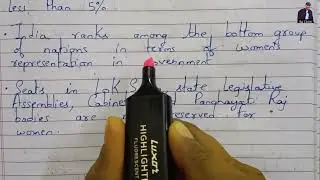 less than 5%
• India ranks among the bottom group
of nations in terms of women's
representation in government
• Seats in LoK S state legislative
Assemblies, Cabine Panchayati Raj
bodies are reserved for
women.
LUXOR
HIGHLIGHTE
FLUORESCENT